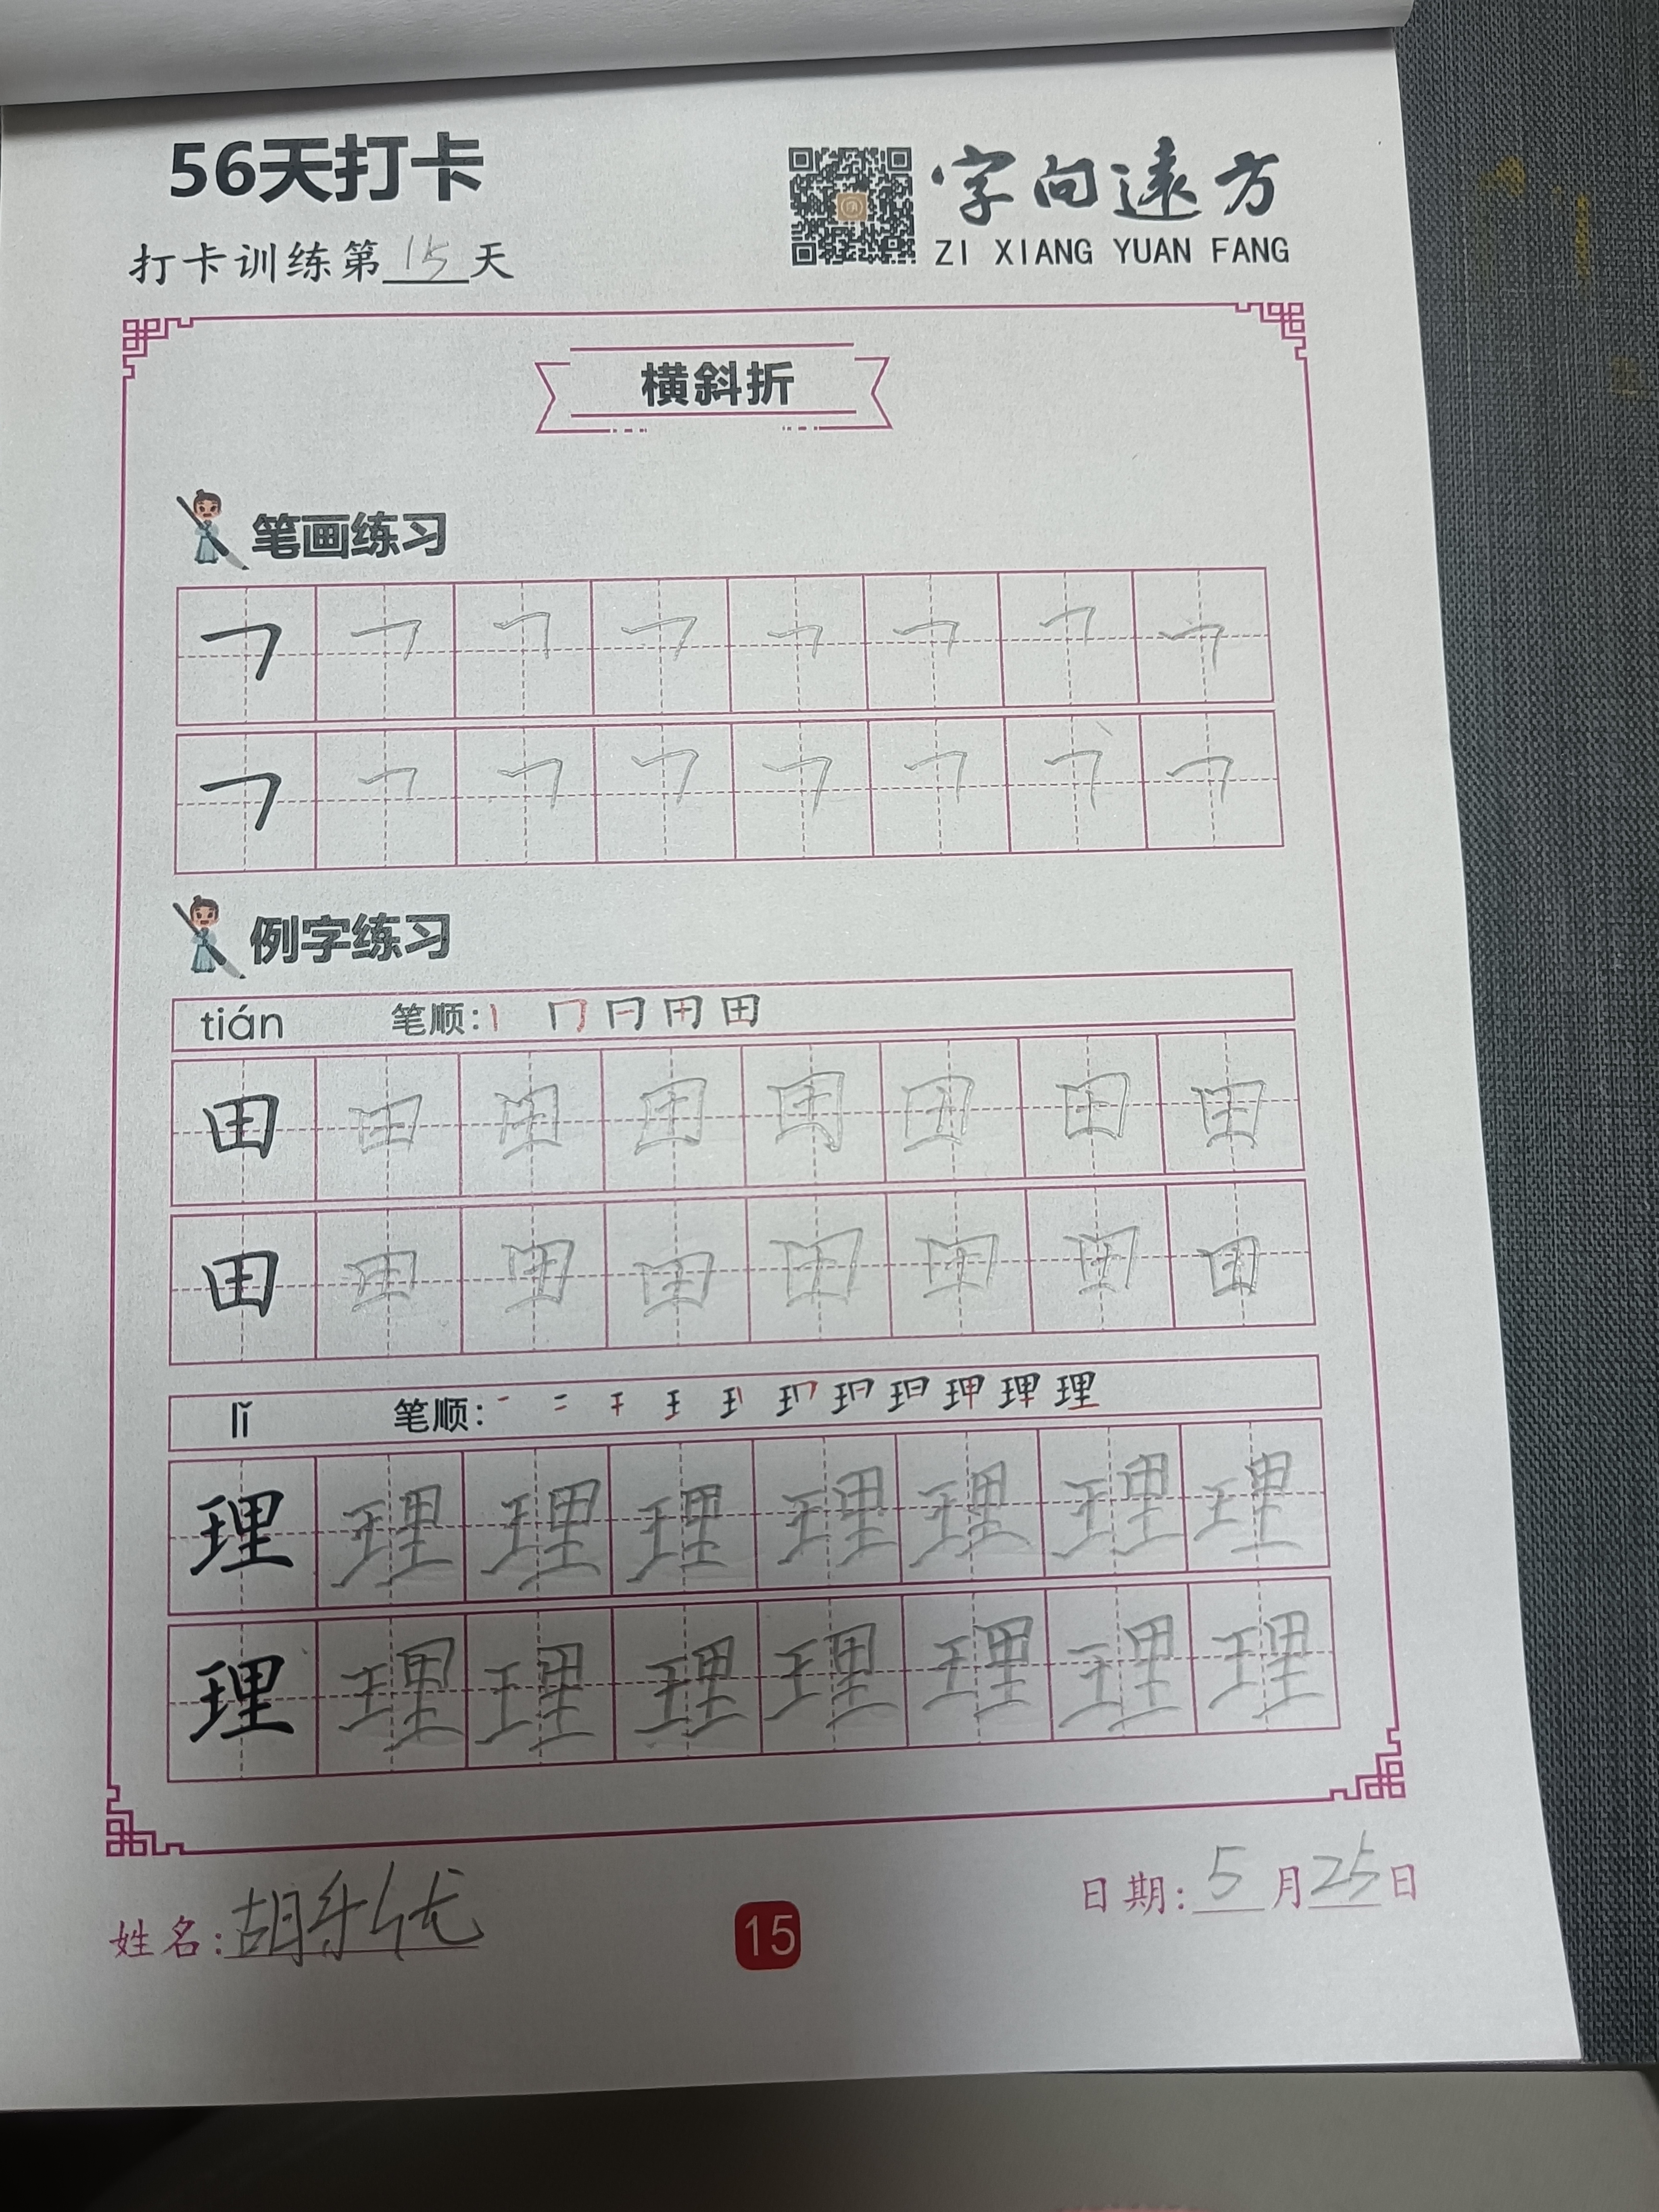 56天打卡
字向遠方
ZI XIANG YUAN FANG
打卡训练第15天
横斜折
笔画练习
例字练习
tián 笔顺: 田
田 田 田 田 田 田 田 田
田 田 田 田 田 田 田 田
lǐ 笔顺: 理
理 理 理 理 理 理 理 理
理 理 理 理 理 理 理 理
姓名:胡乐优
15
日期:5月25日